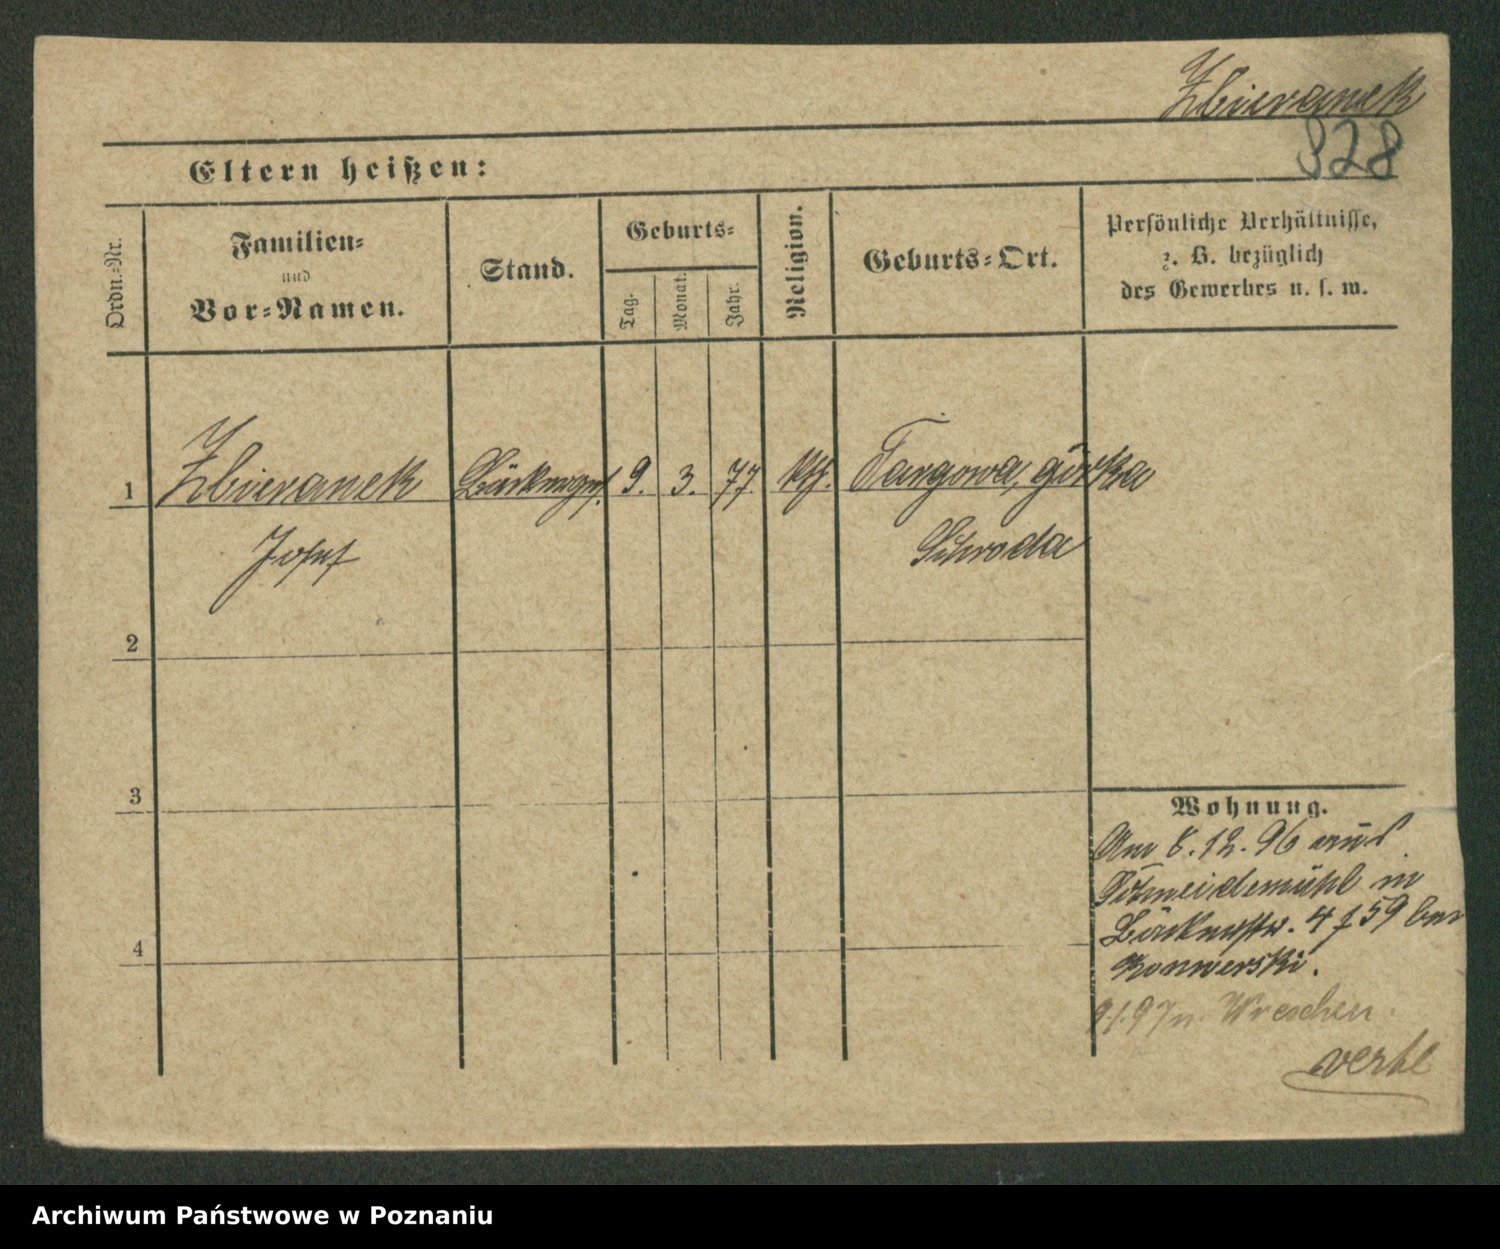 Zbieranek
828
Eltern heißen:
Ordn.-Nr.
Familien-
und
Vor-Namen.
Stand.
Geburts-
Tag.
Monat.
Jahr.
Religion.
Geburts-Ort.
Persönliche Verhältnisse,
z. B. bezüglich
des Gewerbes u. s. w.
1 Zbieranek Bäckergs. 9. 3. 77. kth. Targowa, górka
Josef Schroda
2
3
4
Wohnung.
Am 8.12.96 aus
Schneidemühl in
Bäckerstr. 4 f 59 bei
Konwerski.
9.1.97 n. Wreschen.
Archiwum Państwowe w Poznaniu